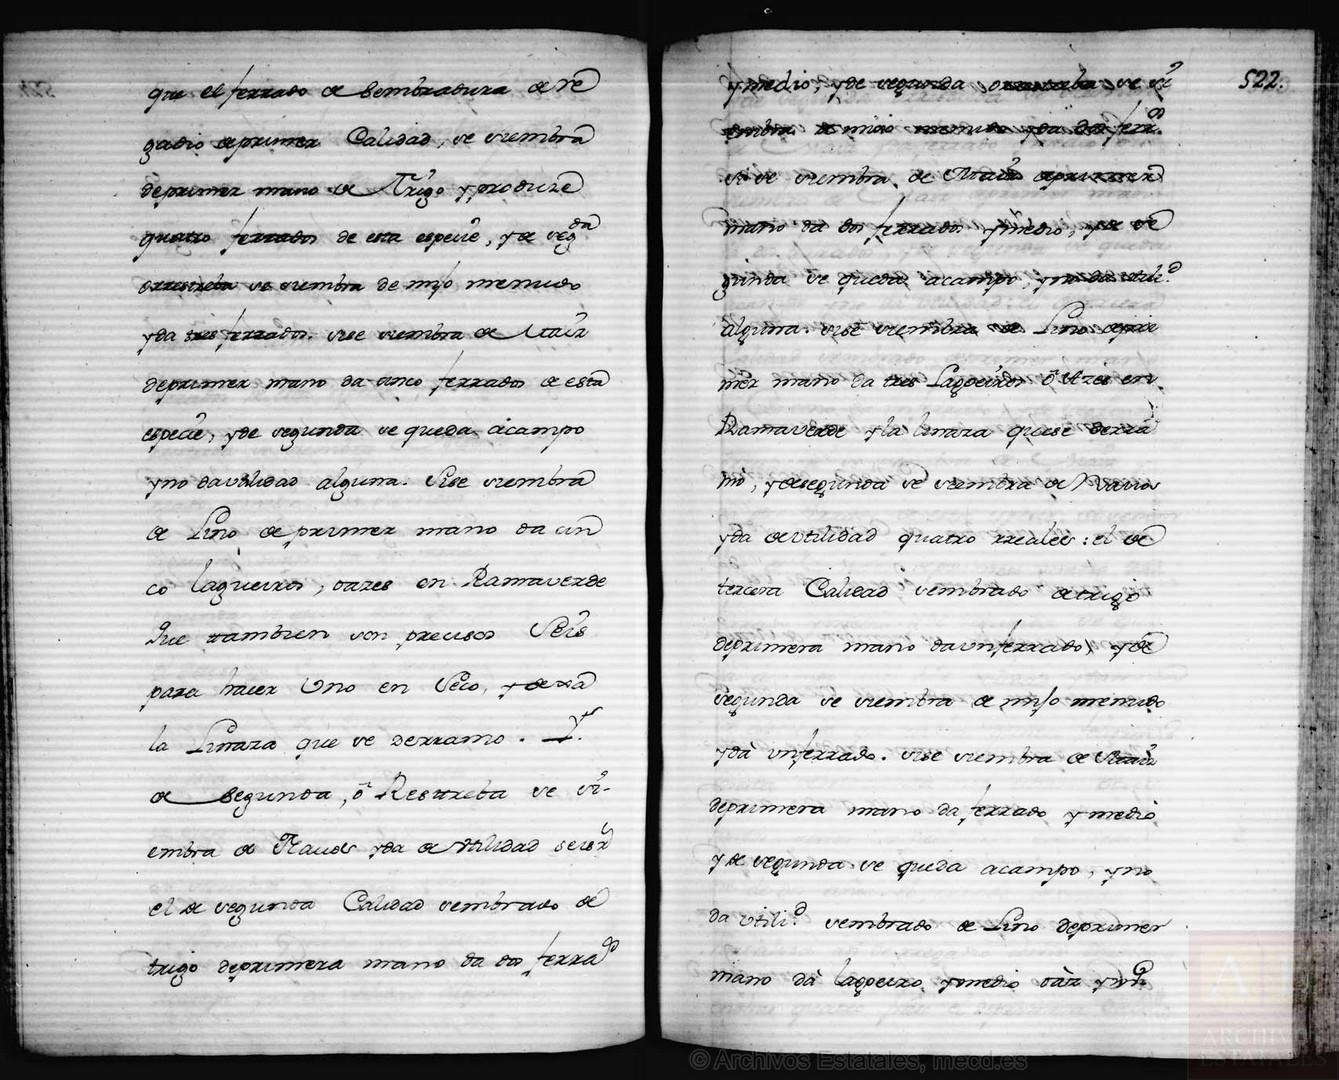 que el ferrado de sembradura de re
gadio deprimer Calidad, se siembra
deprimer mano de Trigo y produze
quatro ferrados de esta especie, y de segda
orrestreba se siembra de mijo menudo
yda tres ferrados. sise siembra de Maiz
deprimer mano da cinco ferrados de esta
especie, yde segunda se queda acampo
yno dautilidad alguna. Sise siembra
de Lino de primer mano da cin
co lagueiros, oazes en Ramaverde
Que tambien son precisos Seis
para hacer Uno en Seco, y demas
la Linaza que se derramo. Y.
de segunda, ô Restreba se si-
embra de Navos yda de utilidad seis rs
el de segunda Calidad sembrado de
trigo deprimera mano da dos ferrados
522.
ymedio, yde segunda orrestreba se si
embra de mijo menudo yda dos ferrdos
si se siembra de Maiz deprimera
mano da dos ferrados ymedio, yde se
gunda se queda acampo, yno da utilid
alguna. sise siembra de Lino depri
mer mano da tres Lagoeiros ô Azes en
Ramaverde yla linaza quese derra
mó, ydesegunda se siembra de Navos
yda de utilidad quatro rreales: el de
tercera Calidad sembrado de trigo
deprimera mano daunferrado, y de
segunda se siembra de mijo menudo
ydá unferrado. sise siembra de Maiz
deprimera mano da ferrado y medio,
y de segunda se queda acampo, yno
da utilid. sembrado de Lino deprimer
mano dá lagoeiro, ymedio
© Archivos Estatales, mecd.es
ARCHIVOS
ESTATALES